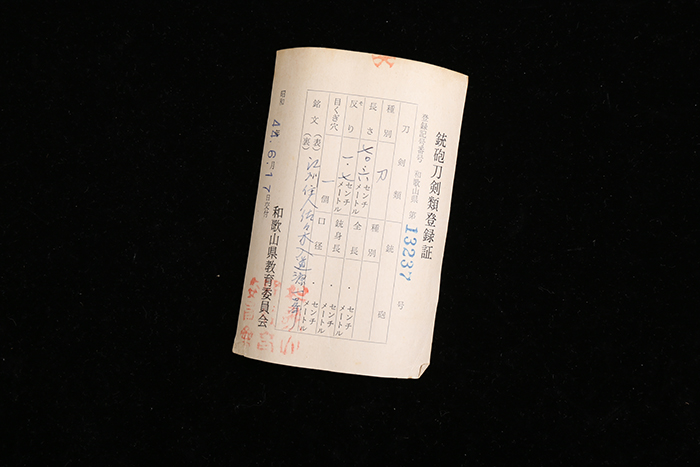 銃砲刀剣類登録証
登録記号番号 和歌山県 第 13237 号
刀剣類 銃砲
種別 刀 種別
長さ 七〇・六 センチメートル 全長 ・ センチメートル
反り 一・七 センチメートル 銃身長 ・ センチメートル
目くぎ穴 一個 口径 ・ センチメートル
銘文 (表) 江州住人佐々木入道源
(裏)
昭和 6月17日交付
和歌山県教育委員会